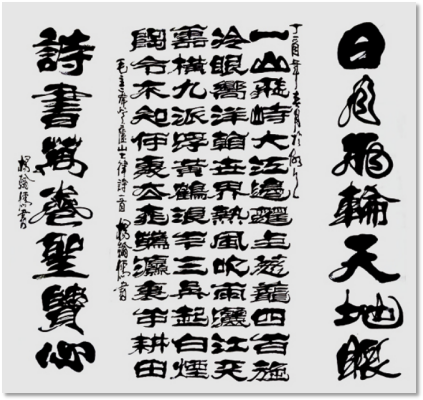 日月兩輪天地眼
一山飛峙大江邊躍上葱蘢四百旋
冷眼嚮洋看世界熱風吹雨灑江天
雲橫九派浮黃鶴浪下三吳起白煙
陶令不知何處去桃花源裏可耕田
毛主席登廬山七律詩一首
詩書萬卷聖賢心